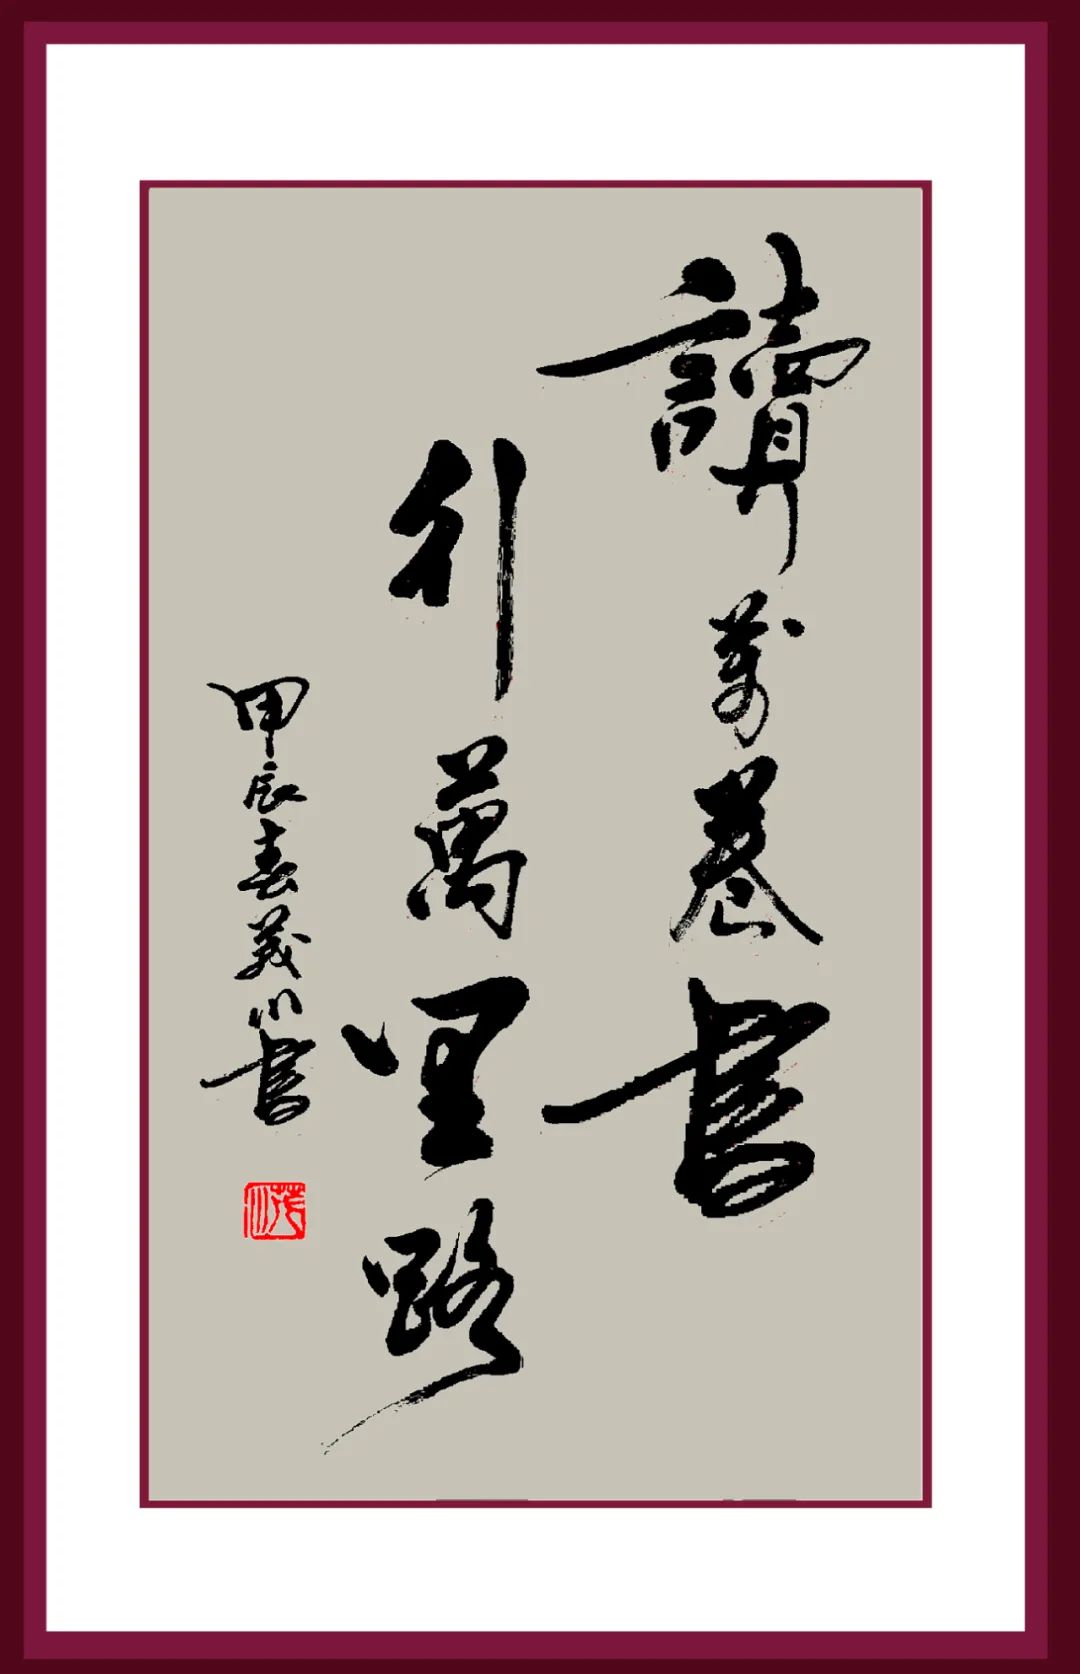 讀萬卷書
行萬里路
甲辰春茂川書
茂川